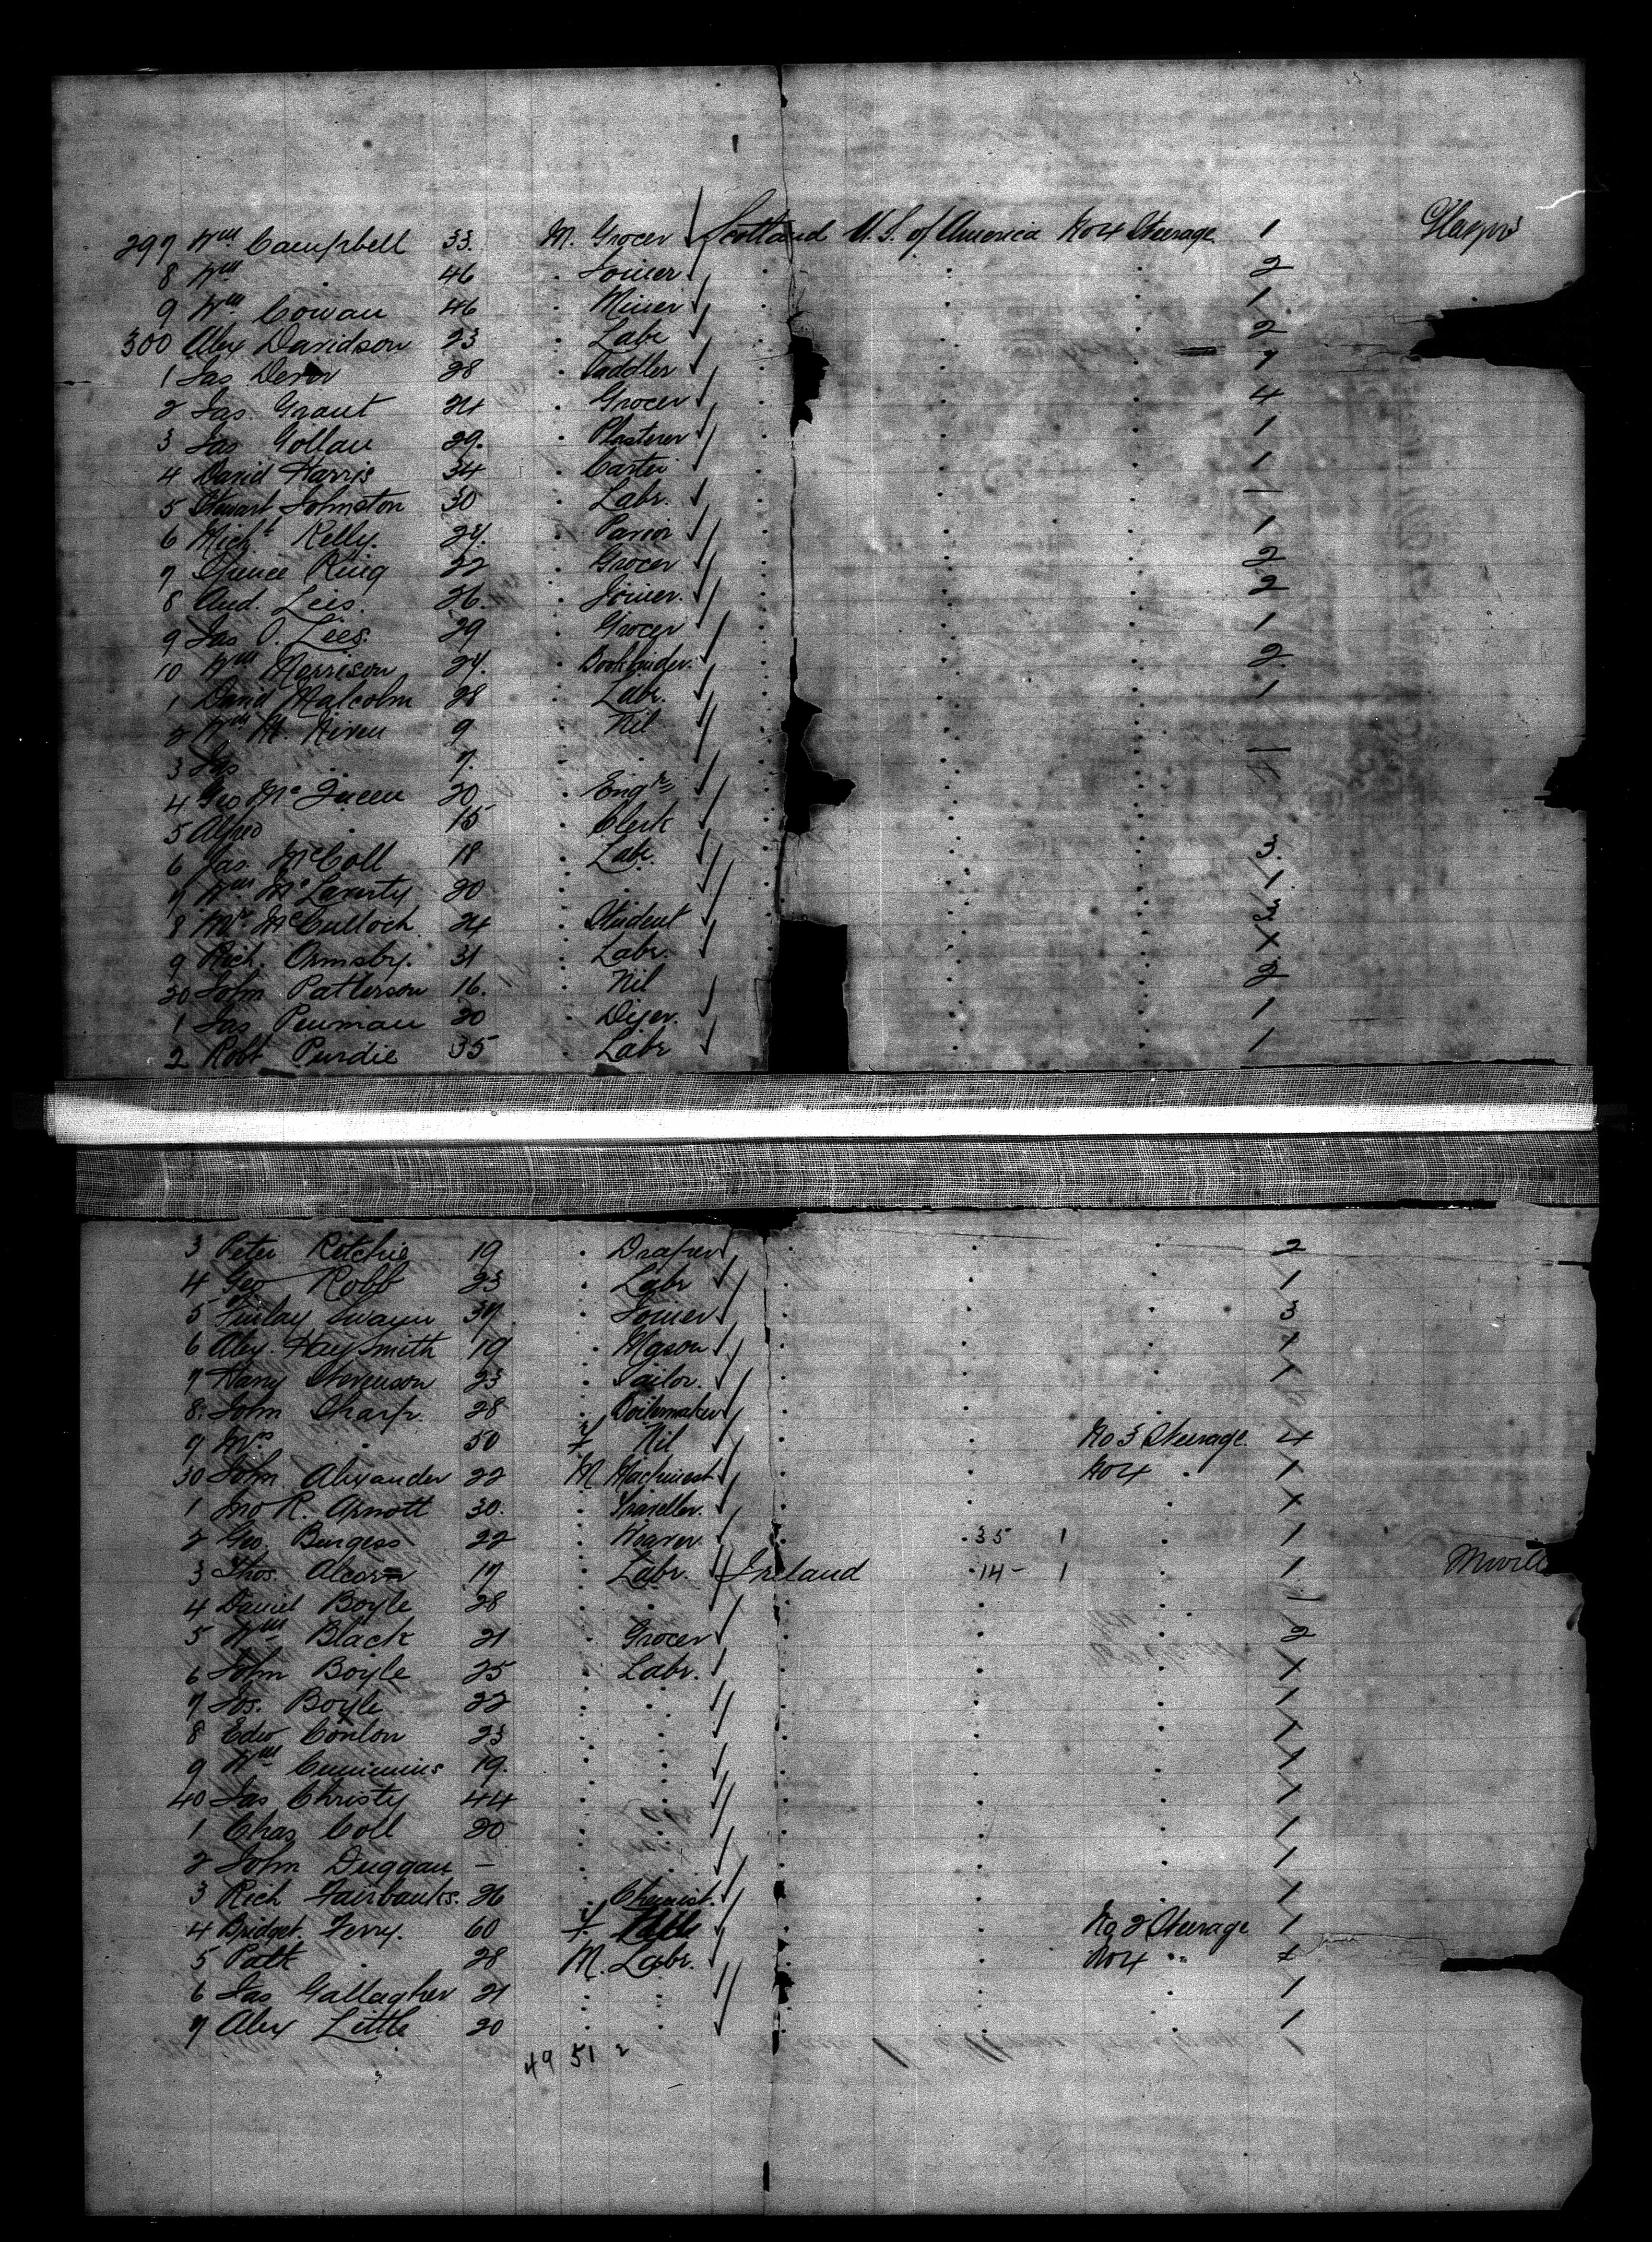 297 Wm Campbell 33 M. Grocer Scotland U.S. of America No 4 Steerage 1 Glasgow
8 Wm . 46 . Joiner . . . 2
9 Wm Cowan 46 . Miner . . . 1
300 Alex Davidson 23 . Labr . . . 2
1 Jas 28 . Saddler . . . 1
2 Jas. Grant 24 . Grocer . . . 4
3 Jas Gollan 29. . Plasterer . . . 1
4 David Harris 34 . Carter . . . 1
5 Stewart Johnston 30 . Labr. . . . 1
6 Michl Kelly. 24. . Pavior . . . 1
7 Spence King 22 . Grocer . . . 2
8 And. Lees. 26. . Joiner. . . . 2
9 Jas O. Lees. 29 . Grocer . . . 1
10 Wm Morrison 24. . Bookbinder. . . . 2
1 David Malcolm 28 . Labr. . . . 1
2 Wm M. Niven 9 . Nil . . .
3 Jas . 7. . . . . . 1
4 Geo McQueen 20 . Engr . . .
5 Alfred . 15 . Clerk . . .
6 Jas. McColl 18 . Labr. . . . 3
7 Wm McLaverty 20 . . . . . 1
8 McCulloch 24 . Student . . .
9 Rich. Ormsby. 31 . Labr. . . . 1
20 John Patterson 16. . Nil . . . 2
1 Jas Penman 20 . Dyer. . . . 1
2 Robt Purdie 35 . Labr . . . 1
3 Peter Ritchie 19 . Draper . . . 2
4 Geo Robb 23 . Labr . . . 1
5 Finlay Swayn 37 . Joiner . . . 3
6 Alex. Haysmith 19 . Mason . . . 1
7 Harry Stevenson 23 . Tailor. . . . 1
8. John Sharp. 28 . Boilermaker . . .
9 Mrs . 50 f Nil . . No 3 Steerage. 4
30 John Alexander 22 M Machinist . . No 4 . 1
1 Jno R. Arnott 30. . Traveller. . . . 1
2 Geo. Burgess 22 . Weaver. . . 35 1 . 1
3 Thos. Alcorn 17 . Labr. Ireland . 14 - 1 . 1 Moville
4 Daniel Boyle 28 . . . . . 1
5 Wm Black 21 . Grocer . . . 2
6 John Boyle 25 . Labr. . . . 1
7 Jos. Boyle 22 . . . . . 1
8 Edw Conlon 23 . . . . . 1
9 Wm Cummins 19. . . . . . 1
40 Jas Christy 44 . . . . . 1
1 Chas Coll 20 . . . . . 1
2 John Duggan - . . . . . 1
3 Rich Fairbanks. 26 . Chemist. . . . 1
4 Bridget. Ferry. 60 f . . No 2 Steerage 1
5 Patk . 28 M. Labr. . . No 4 "
6 Jas Gallagher 21 . . . . . 1
7 Alex Little 20 . . . . . 1
49 51 2